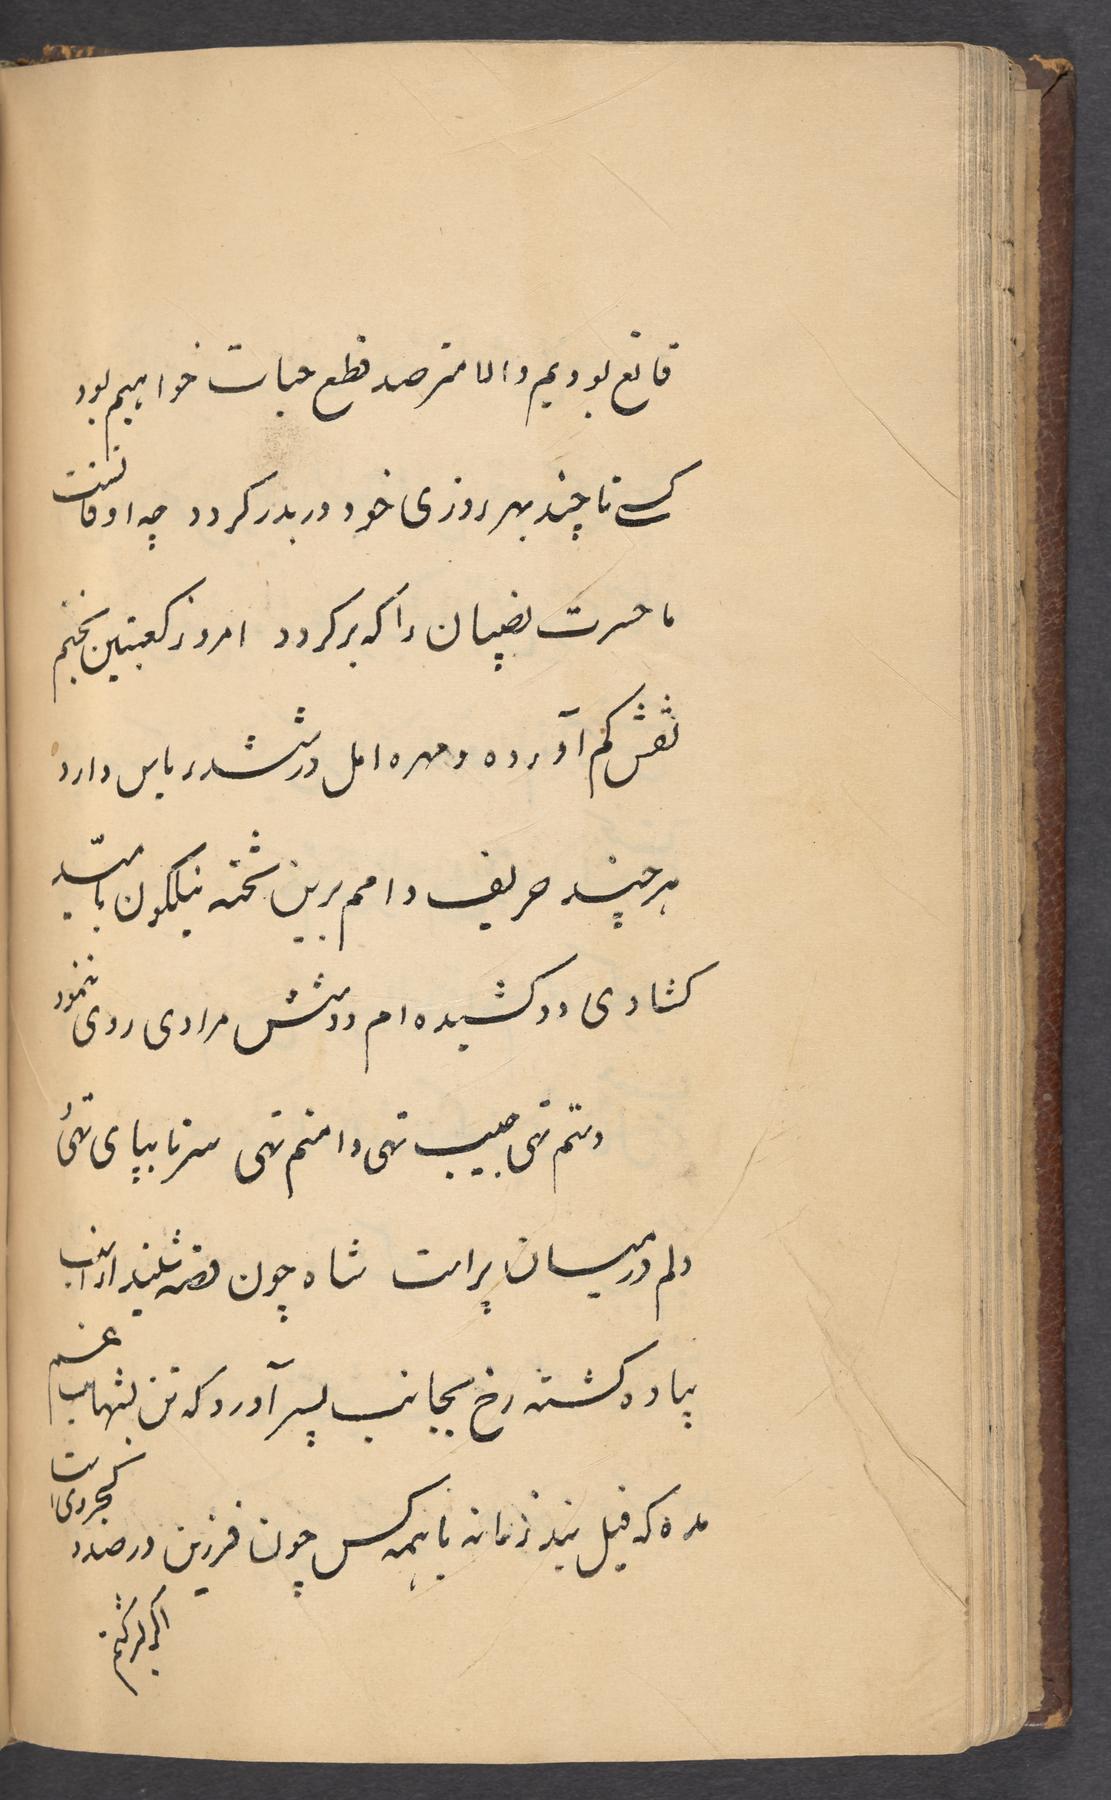 قانع بودیم والا مترصد قطع حیات خواهیم بود
کسی تا چند بهر روزی خود در بدر کردد چه اوقاتست
ما حسرت نصیبان را که بر کردد امروز کعبتین بختم
نقش کم آورده و مهره امل در ششدر یاس دارد
هر چند حریف دامم برین تخته نیلکون بامید
کشادی دو کشیده ام دو شش مرادی روی ننمود
دستم تهی جیب تهی دامنم تهی سر تا بپای تهی
دلم در میان پر است شاه چون قصه شنید از اسب
پیاده کشته رخ بجانب پسر آورد که تن بشهمات غم
مده که فیل بند زمانه با همه کس چون فرزین در صدد کجروی است
اکر لر کشم